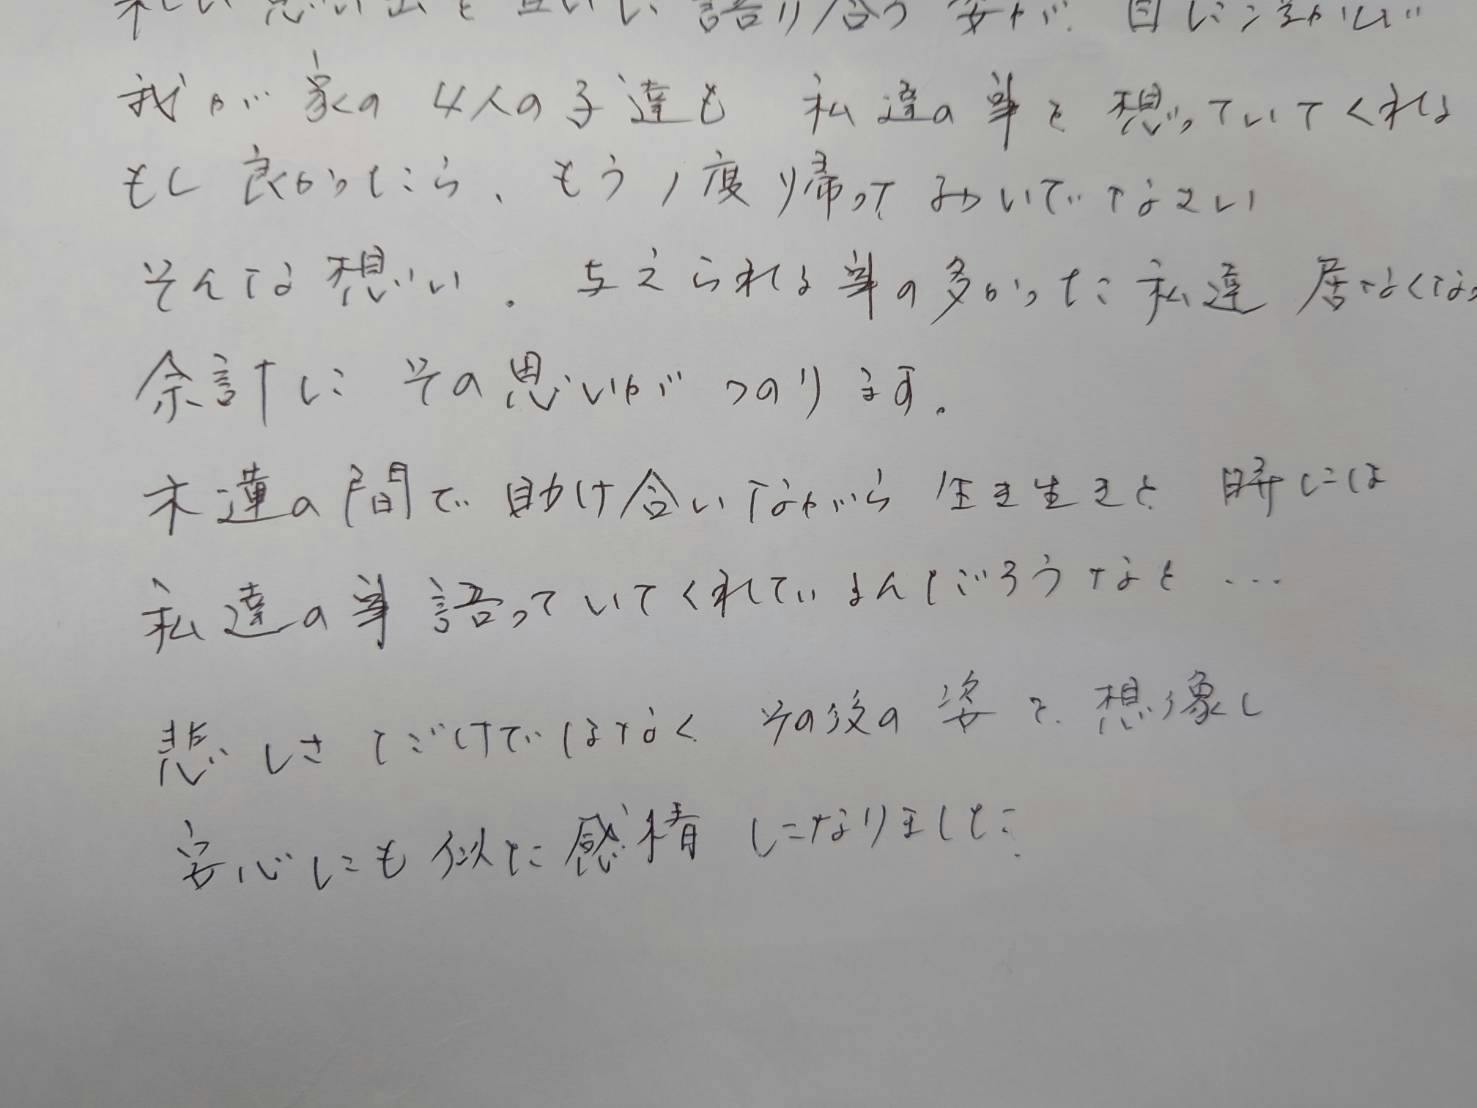 思い出を互いに語り合う姿が、目に浮かび
我が家の4人の子達も 私達の事を 想っていてくれ
もし良かったら、もう1度帰っておいでなさい
そんな想い。与えられる事の多かった私達 居なくなっ
余計に その思いが つのります。
木蓮の間で 助け合いながら 生き生きと 時には
私達の事 語っていてくれているんだろうなと…
悲しさだけではなく その後の 姿を 想像し
安心にも似た感情になりました